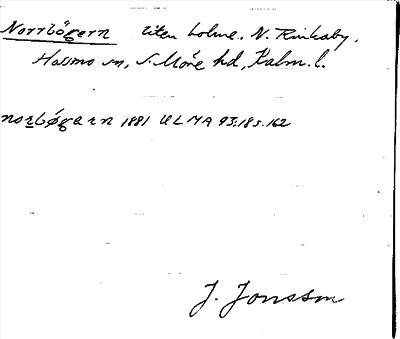 Norrbögern liten holme, N. Rinkaby,
Hossmo sn, S. Möre hd, Kalm. l.
norbǿgarn 1881 ULMA 93:18 s. 162
J. Jonsson